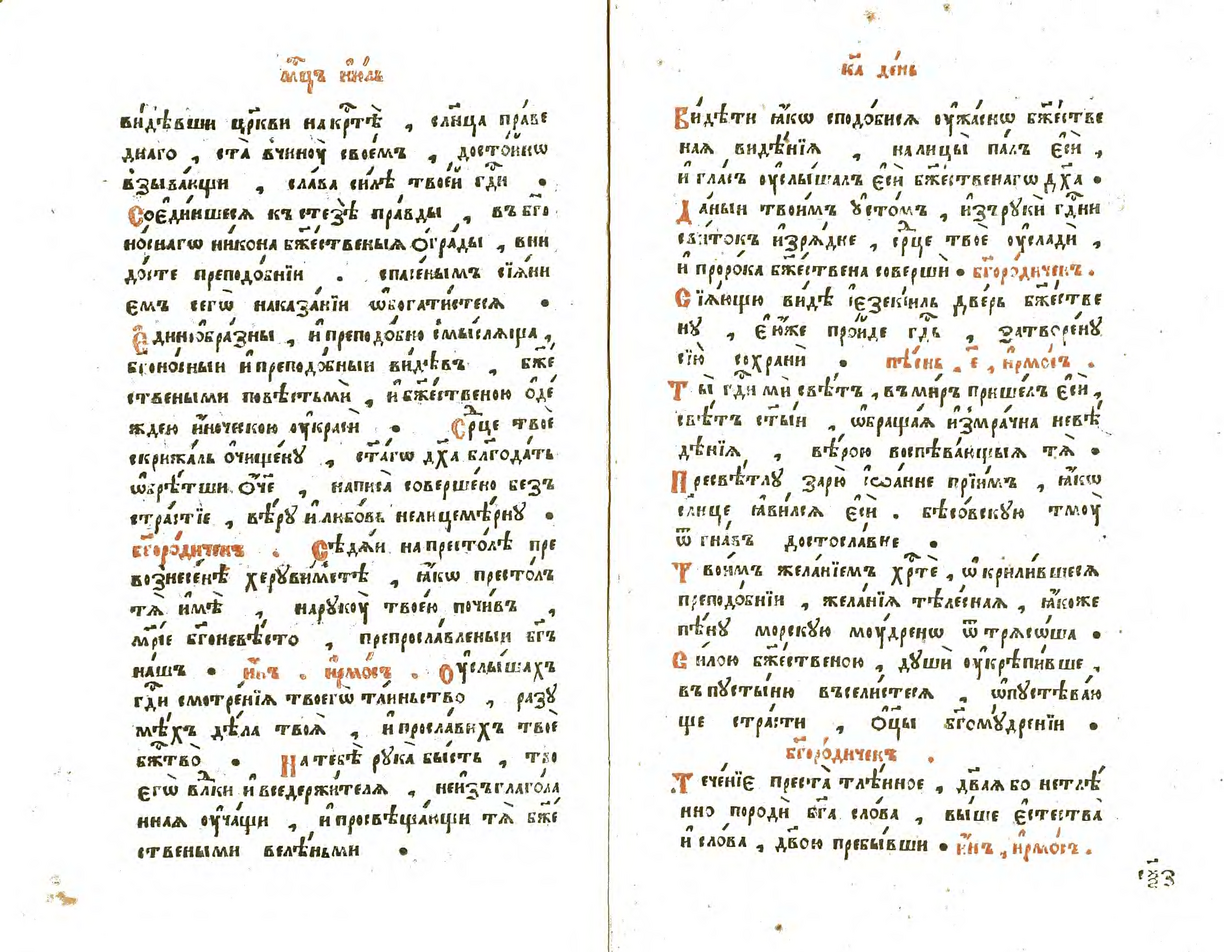 мц҃ъ і҆ю́ль
ви́дѣвши цр҃кви на крⷭ҇тѣ̀ , сл҃нца пра́ве
днаго , ста̀ в чинꙋ̀ свое́мъ , досто́йнѡ
взыва́ющи , сла́ва си́лѣ твое́й гдⷭ҇и .
Соедини́шеся къ стезѣ̀ пра́вды , въ бг҃о
но́снагѡ ни́кона бж҃е́ственыѧ ѻ҆гра́ды , вни
до́сте преподо́бнїи . спасе́нымъ сїѧ́ни
емъ сегѡ̀ наказа́нїи ѡ҆богати́стесѧ .
Є҆динноѻбра́зны , и҆ преподо́бно смы́слѧща ,
бг҃оно́сныи и҆ преподо́бныи ви́дѣвъ , бж҃е
ствеными по́вѣстьми , и҆ бж҃е́ственою ѻ҆де́
ждею и҆но́ческою ᲂу҆красѝ . Срⷣце твоѐ
скрижа́ль ѻ҆чище́нꙋ , ст҃а́гѡ дх҃а благода́ть
ѡ҆брѣ́тши ѻ҆́ч҃е , написа̀ соверше́но безъ
стра́стїе , вѣ́рꙋ и҆ любо́вь нелицемѣ́рнꙋ .
бг҃оро́диченъ . Сѣдѧ́й на престо́лѣ пре
вознесе́нѣ херꙋви́мстѣ , ꙗ҆́кѡ престо́лъ
тѧ̀ и҆мѣ̀ , на рꙋкꙋ̀ твое́ю почи́въ ,
мр҃і́е бг҃оневѣ́сто , препросла́вленыи бг҃ъ
на́шъ . и҆́нъ . і҆рмо́съ . Оу҆слы́шахъ
гдⷭ҇и смотре́нїѧ твоегѡ̀ та́иньство , разꙋ
мѣ́хъ дѣла̀ твоѧ̀ , и҆ просла́вихъ твоѐ
бж҃тво̀ . На тебѣ̀ рꙋка̀ бы́сть , тво
егѡ̀ влⷣки и҆ вседержи́телѧ , неизъглаго́ла
ннаѧ ᲂу҆ча́щи , и҆ просвѣща́ющи тѧ̀ бж҃е
ствеными велѣ́ньми .
к҃а де́нь
Ви́дѣти ꙗ҆́кѡ сподо́бисѧ ᲂу҆жа́снѡ бж҃е́стве
наѧ видѣ́нїѧ , на лицы̀ па́лъ є҆сѝ ,
и҆ гла́съ ᲂу҆слы́шалъ є҆сѝ бж҃е́ственагѡ дх҃а .
Да́ныи твои́мъ ᲂу҆сто́мъ , и҆зъ рꙋкѝ гдⷭ҇ни
сви́токъ и҆зрѧ́дне , срⷣце твоѐ ᲂу҆сладѝ ,
и҆ проро́ка бж҃е́ствена совершѝ . бг҃оро́диченъ .
Сїѧ́ющꙋю ви́дѣ і҆езекі́иль две́рь бж҃е́стве
нꙋ , є҆ю́же про́йде гдⷭ҇ь , затворе́нꙋ
сїю̀ сохранѝ . пѣ́снь , є҃ , і҆рмо́съ .
Ты̀ гдⷭ҇и мѝ свѣ́тъ , въ ми́ръ прише́лъ є҆сѝ ,
свѣ́тъ ст҃ы́и , ѡ҆браща́ѧ и҆з мра́чна невѣ́
дѣнїѧ , вѣ́рою воспѣва́ющыѧ тѧ̀ .
Пресвѣ́тлꙋ зарю̀ і҆ѡа́нне прїи́мъ , ꙗ҆́кѡ
сл҃нце ꙗ҆ви́лсѧ є҆сѝ . бѣсо́вскꙋю тмꙋ̀
ѿ гна́въ достосла́вне .
Твои́мъ жела́нїемъ хрⷭ҇тѐ , ѡ҆крили́вшеесѧ
преподо́бнїи , жела́нїѧ тѣле́снаѧ , ꙗ҆́коже
пѣ́нꙋ морскꙋ́ю мꙋ́дренѡ ѿ трѧсо́ша .
Си́лою бж҃е́ственою , дꙋ́ши ᲂу҆крѣпи́вше ,
въ пꙋсты́ню въсели́стесѧ , ѡ҆пꙋстѣва́ю
ще стра́сти , ѻ҆ц҃ы̀ бг҃омꙋ́дренїи .
бг҃оро́диченъ .
Тече́нїе преста̀ тлѣ́нное , дв҃аѧ бо нетлѣ́
нно породѝ бг҃а сло́ва , вы́ше є҆стества̀
и҆ сло́ва , дв҃ою пребы́вши . и҆́нъ , і҆рмо́съ .